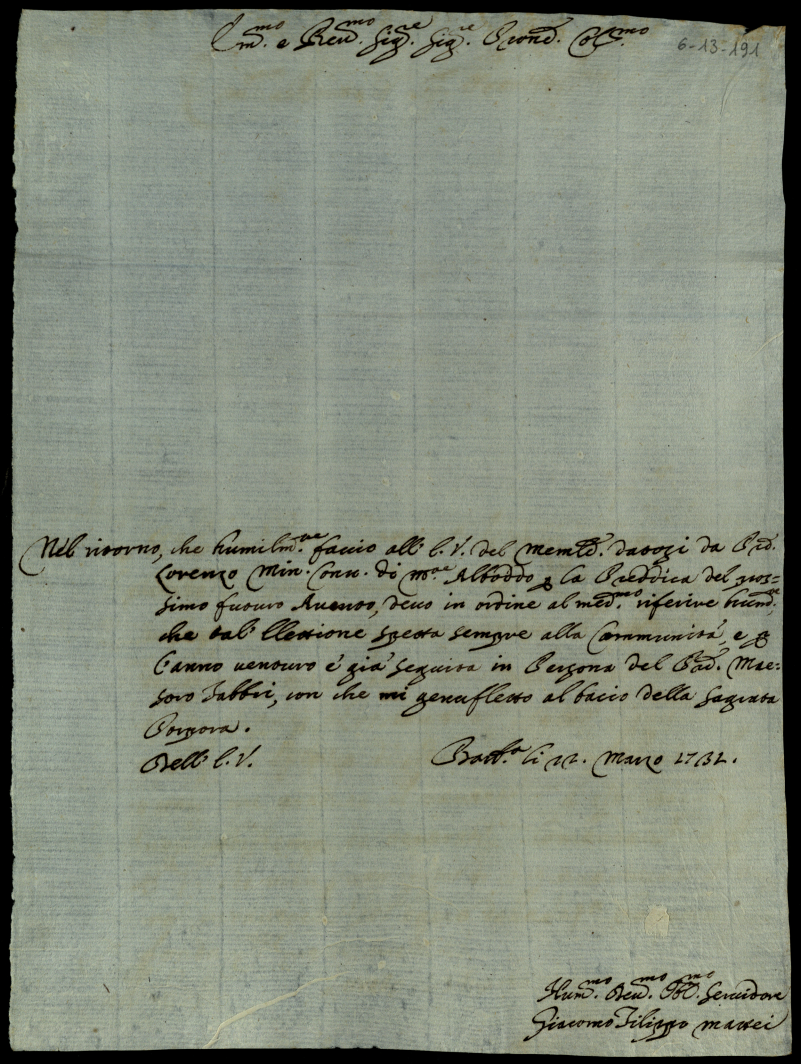 Em.mo e Reu.mo Sig.re Sig.re Pron. Col.mo
6-13-191
Nel ritorno, che humilm.te faccio all' E. V. del Mem.le datogi da Pad.
Lorenzo Min. Conu. di M.te Alboddo p la Preddica del pros=
simo futuro Auento, deuo in ordine al med.mo riferire hum.te
che tal' Ellettione spetta sempre alla Communità, e p
l'anno uenturo è già seguita in Persona del Pad. Mae=
stro Fabbri, con che mi genufletto al bacio della Sagrata
Porpora.
Dell' E. V. li 22. Marzo 1732.
Hum.mo Deu.mo Obl.mo Seruidore
Giacomo Filippo Mattei